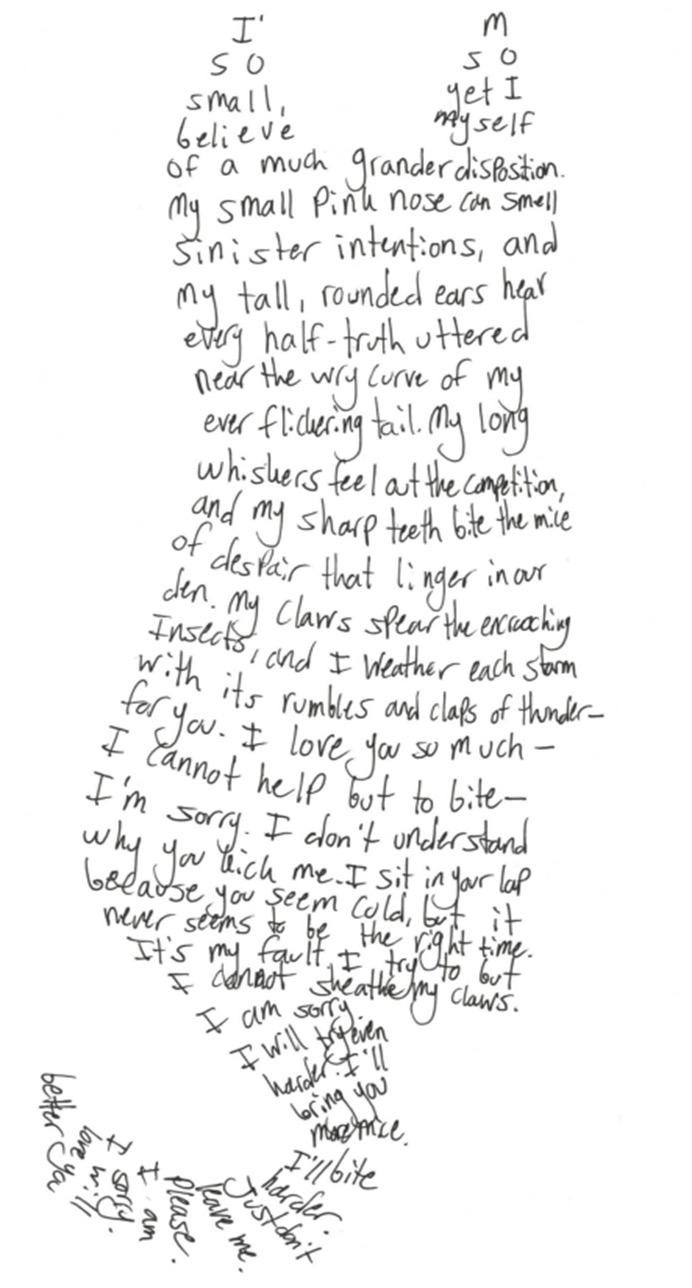 I' M
SO SO
small, yet I
believe myself
of a much grander disposition.
My small pink nose can smell
sinister intentions, and
my tall, rounded ears hear
every half-truth uttered
near the wry curve of my
ever flickering tail. My long
whiskers feel out the competition,
and my sharp teeth bite the mice
of despair that linger in our
den. My claws spear the encroaching
Insects, and I weather each storm
with its rumbles and claps of thunder—
for you. I love you so much—
I cannot help but to bite—
I'm sorry. I don't understand
why you kick me. I sit in your lap
because you seem cold, but it
never seems to be the right time.
It's my fault I try to but
I cannot sheathe my claws.
I am sorry.
I will try even
harder. I'll
bring you
more mice.
I'll bite
harder.
Just don't
leave me.
please.
I am
I sorry.
love will
better ya'll